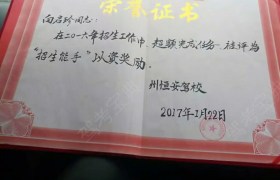 荣誉证书
同志：
在二〇一六年招生工作中，超额完成任务，被评为
"招生能手"以资奖励。
州恒安驾校
2017年1月22日